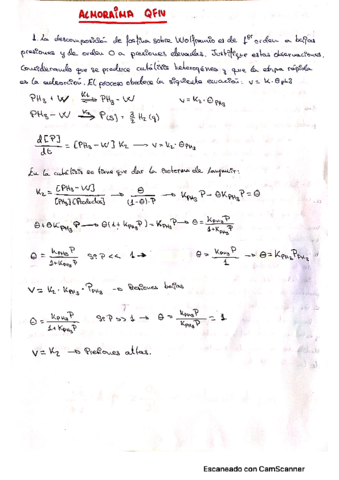 ALMORAIMA QFIV
1. La descomposición de fosfina sobre Wolframio es de 1er orden a bajas
presiones y de orden 0 a presiones elevadas. Justifique estas observaciones,
considerando que se produce catálisis heterogénea y que la etapa rápida
es la adsorción. El proceso obedece la siguiente ecuación. v = k·θpH3
PH3 + W ⇌ PH3 - W v = k2·θPH3
PH3 - W → P(s) + 3/2 H2 (g)
d[P]/dt = [PH3-W] K2 → v = k2·θPH3
En la catálisis se tiene que dar la isoterma de Langmuir:
K2 = [PH3-W]/[PH3] → θ/(1-θ)·P → KPH3 P - θKPH3 P = θ
θ + θKPH3 P → θ(1 + KPH3 P) = KPH3 P → θ = KPH3 P/1+KPH3 P
θ = KPH3 P/1+KPH3 P Si P << 1 → θ = KPH3 P/1 → θ = KPH3 PPH3
V = K2 · KPH3 · PPH3 → Presiones bajas
θ = KPH3 P/1+KPH3 P Si P >> 1 → θ = KPH3 P/KPH3 P = 1
V = K2 → Presiones altas.
Escaneado con CamScanner